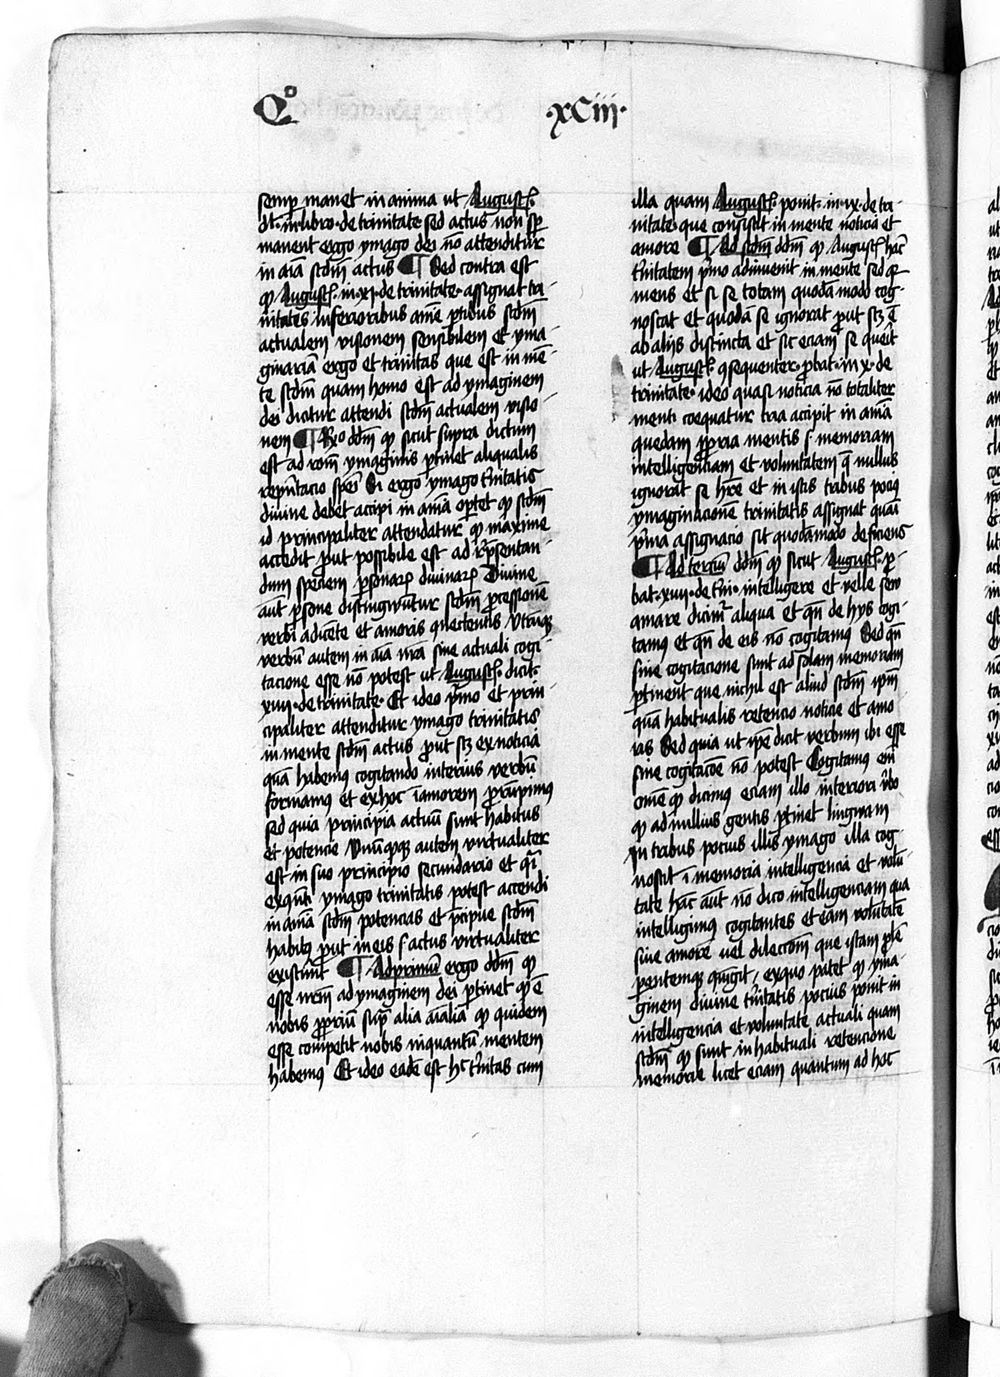 Qo ·xCiii·
semp manet in anima ut August9
dt· in libro· de trinitate sed actus non sp
manent ergo ymago dei no attenditur
in aia scdm actus ¶ Sed contra est
qp August9· in·xi· de trinitate· assignat tri-
nitates inferioribus aie ptibus scdm
actualem visionem sensibilem et yma-
ginariam ergo et trinitas que est in men-
te scdm quam homo est ad ymaginem
dei dicitur attendi scdm actualem visio-
nem ¶ Rio ddm qp sicut supra dictum
est ad rom ymaginis ptinet aliqualis
repntacio spei Si ergo ymago tinitatis
divine debet accipi in aia optet qp scdm
id principaliter attendatur qp maxime
accedit put possibile est ad rpsentan-
dum speciem psonar divinar Divine
aut psone distinguntur scdm pcessione
verbi a dicete et amoris
verbu autem in aia nra sine actuali cogi-
tacione esse no potest ut August9· dicit·
xiiii· de trinitate· Et ideo pmo et prin-
cipaliter attenditur ymago trinitatis
in mente scdm actus put scz ex noticia
qua habemus cogitando interius verbu
formamus et ex hoc in amorem prumpimus
sed quia principia actuu sunt habitus
et potencie Unuqdqz autem virtualiter
est in suo principio secundario et qi
ex qnti ymago trinitatis potest attendi
in aia scdm potencias et pcipue scdm
habitus put in eis actus virtualiter
existunt ¶ Ad primu ergo ddm qp
esse nrm ad ymaginem dei ptinet qp e
nobis ppriu sup alia aialia qp quidem
esse competit nobis inquantu mentem
habemus Et ideo eade est hc tinitas cum
illa quam August9 ponit· in·ix· de tri-
nitate· que consistit in mente noticia et
amore ¶ Ad scdm ddm qp August9 hac
tinitatem pmo adinvenit in mente sed qp
mens et si se totam quoda modo cog-
noscat et quoda se ignorat put scz e
ab aliis distincta et sic eciam se querit
ut August9 9sequenter pbat· in x· de
trinitate· ideo quasi noticia no totaliter
menti coequatur tria accipit in aia
quedam ppria mentis s memoriam
intelligenciam et voluntatem q nullus
ignorat se hre et in istis tribus pocius
ymaginacione trinitatis assignat quasi
pma assignacio sit quodamodo deficiens
¶ Ad terciu ddm qp sicut August9· p-
bat· xiiii· de tini· intelligere et velle seu
amare dicimr aliqua et qn de hys cogi-
tamus et qn de eis no cogitamus Sed qn
sine cogitacione sunt ad solam memoriam
ptinent que nichil est aliud scdm ipm
qua habitualis retencio noticie et amo-
ris Sed quia ut ipe dicit verbum ibi esse
sine cogitacoe no potest Cogitamus em
ome qp dicimus eciam illo interiori vbo
qp ad nullius gentis ptinet linguam
In tribus pocius illis ymago illa cog-
noscit i memoria intelligencia et volu-
tate hac aut no dico intelligenciam qua
intelligimus cogitantes et eam volutate
sive amore vel dileccom que istam ple
parentemqz giugit ex quo patet qp yma-
ginem divine tinitatis pocius ponit in
intelligencia et voluntate actuali quam
scdm qp sunt in habituali retencione
memorie licet eciam quantum ad hoc